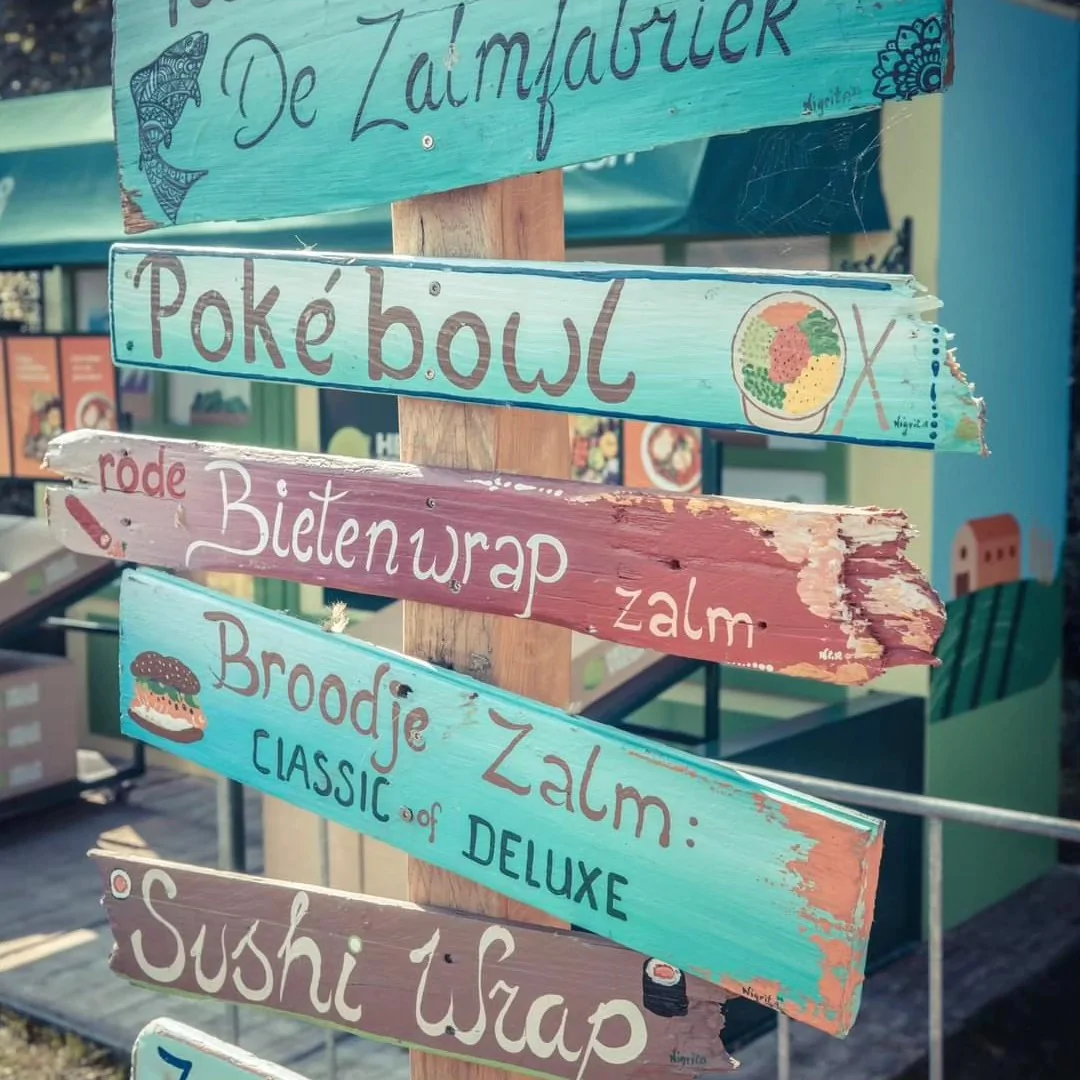 De Zalmfabriek
Nigrita
Poké bowl
Nigrita
rode Bietenwrap
zalm
Broodje Zalm:
CLASSIC of DELUXE
Nigrita
Sushi Wrap
Nigrita